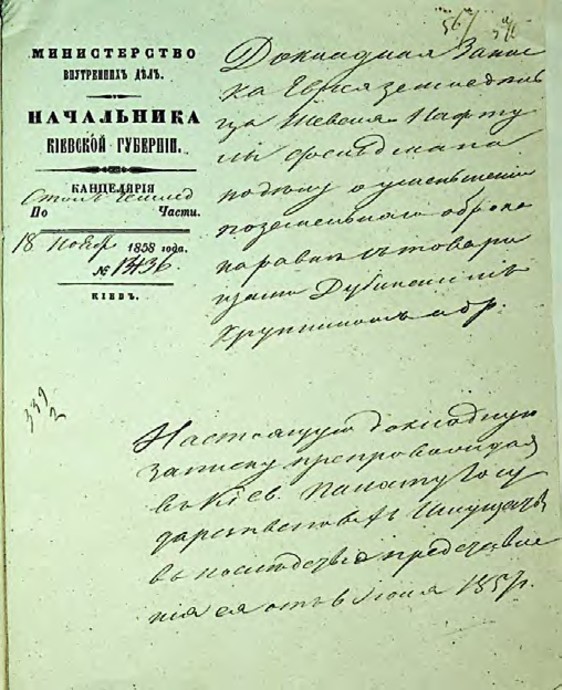 МИНИСТЕРСТВО
ВНУТРЕННИХЪ ДѢЛЪ.
НАЧАЛЬНИКА
КІЕВСКОЙ ГУБЕРНІИ.
КАНЦЕЛЯРІЯ
Столъ
По Части.
18 Ноябр 1858 года.
№ 13436
КІЕВЪ.
Докладная Запис
ка Еврея земледѣль
ца Шевеля Нафту
ла
по дѣлу о уменьшеніи
поземельнаго оброка
наравнѣ съ товари
щами Дубинскимъ
Крупникомъ и др.
Настоящую докладную
записку препровождая
въ Кіев. Палату Госу
дарственныхъ Имуществ
въ послѣдствіе представле
нія ея отъ 6 Іюня 1857 г.